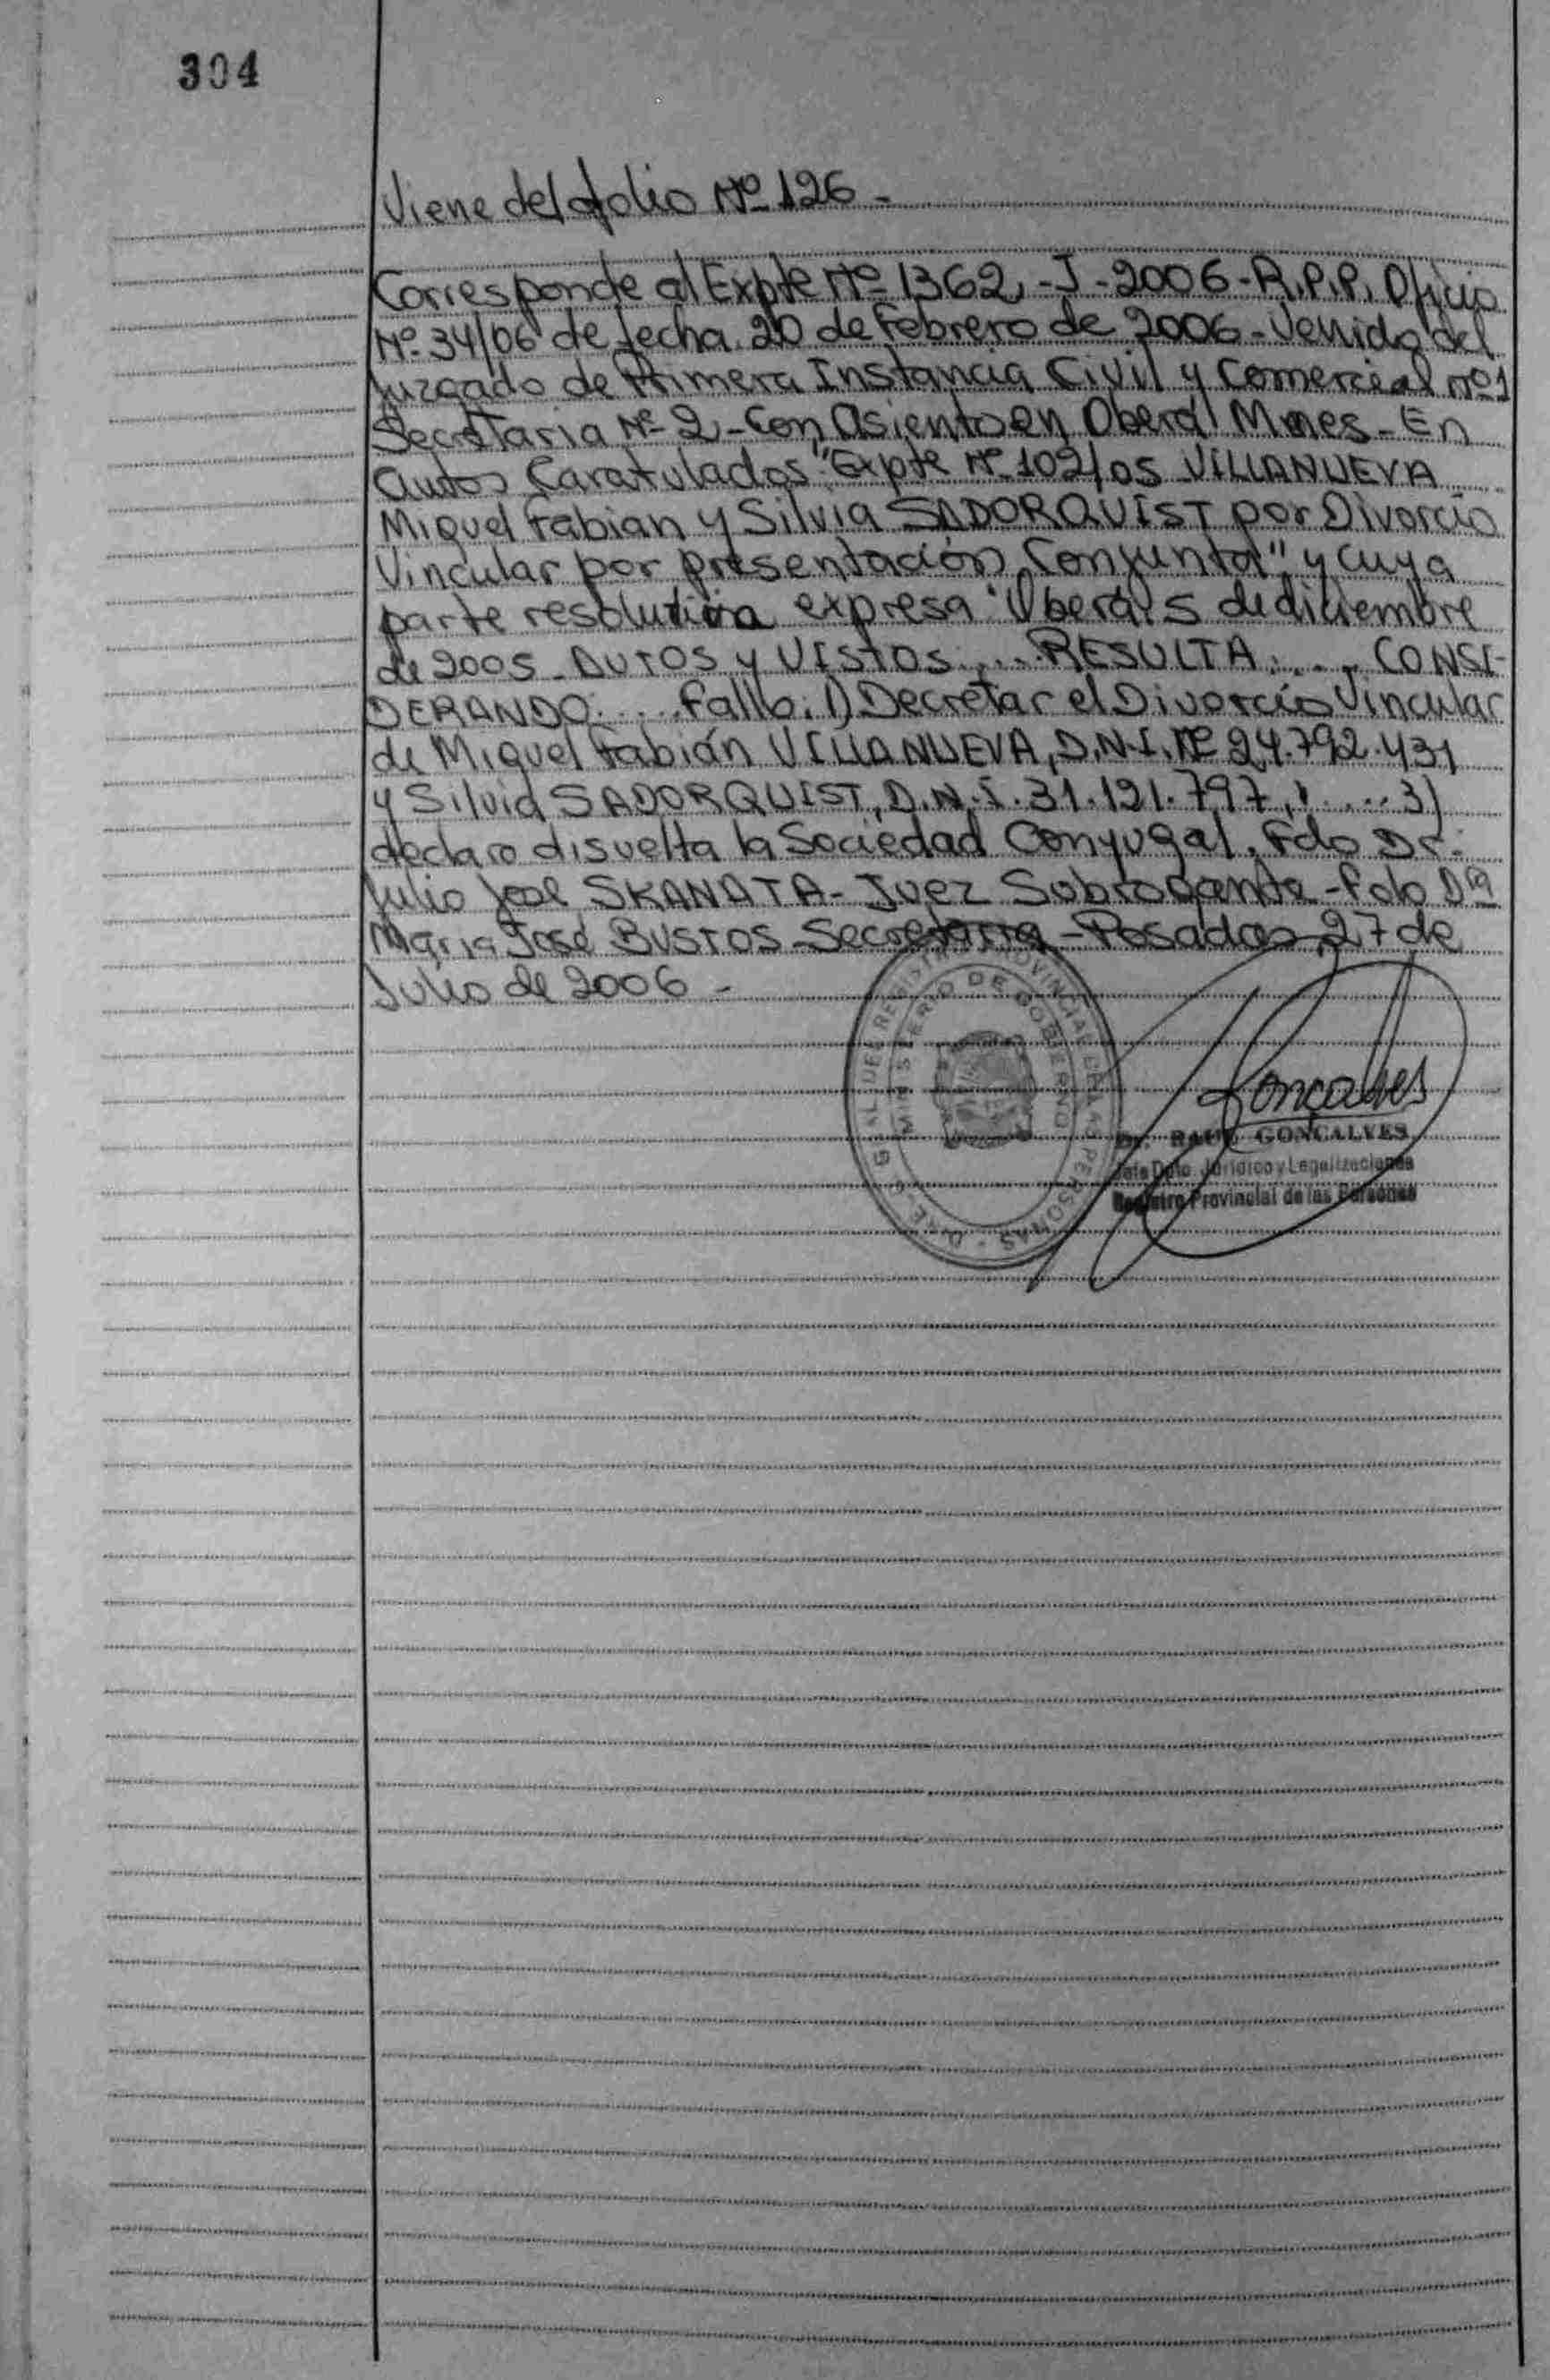 304
Viene del folio Nº 126 -
Corresponde al Expte Nº 1362, -J-2006-R.P.P. Oficio
Nº 34/06 de fecha 20 de febrero de 2006 - Venido del
Juzgado de Primera Instancia Civil y Comercial nº 1
Secretaria Nº 2 - Con asiento en Oberá Mnes - En
autos Caratulados "Expte Nº 102/05 VILLANUEVA
Miguel Fabian y Silvia SADORQUIST por Divorcio
Vincular por presentación Conjunta" y cuya
parte resolutiva expresa "Oberá, 5 de diciembre
de 2005 - AUTOS y VISTOS: .... RESULTA: .... CONSI-
DERANDO: .... Fallo: 1) Decretar el Divorcio Vincular
de Miguel Fabián VILLANUEVA, D.N.I. Nº 24.792.431
y Silvia SADORQUIST, D.N.I. 31.121.797, .... 3)
declaro disuelta la Sociedad Conyugal. Fdo Dr.
Julio José SKANATA - Juez Subrogante - Fdo Dra
Maria José BUSTOS - Secretaria - Posadas, 27 de
Julio de 2006 -
MINISTERIO DE GOBIERNO
Goncalves
Dr. RAUL GONCALVES
Jefe Dpto. Jurídico y Legalizaciones
Registro Provincial de las Personas